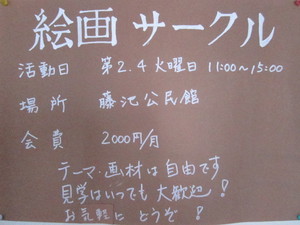 絵画サークル
活動日 第2.4火曜日 11:00~15:00
場所 藤沁公民館
会費 2000円/月
テーマ・画材は自由です
見学はいつでも大歓迎!
お気軽に どうぞ!